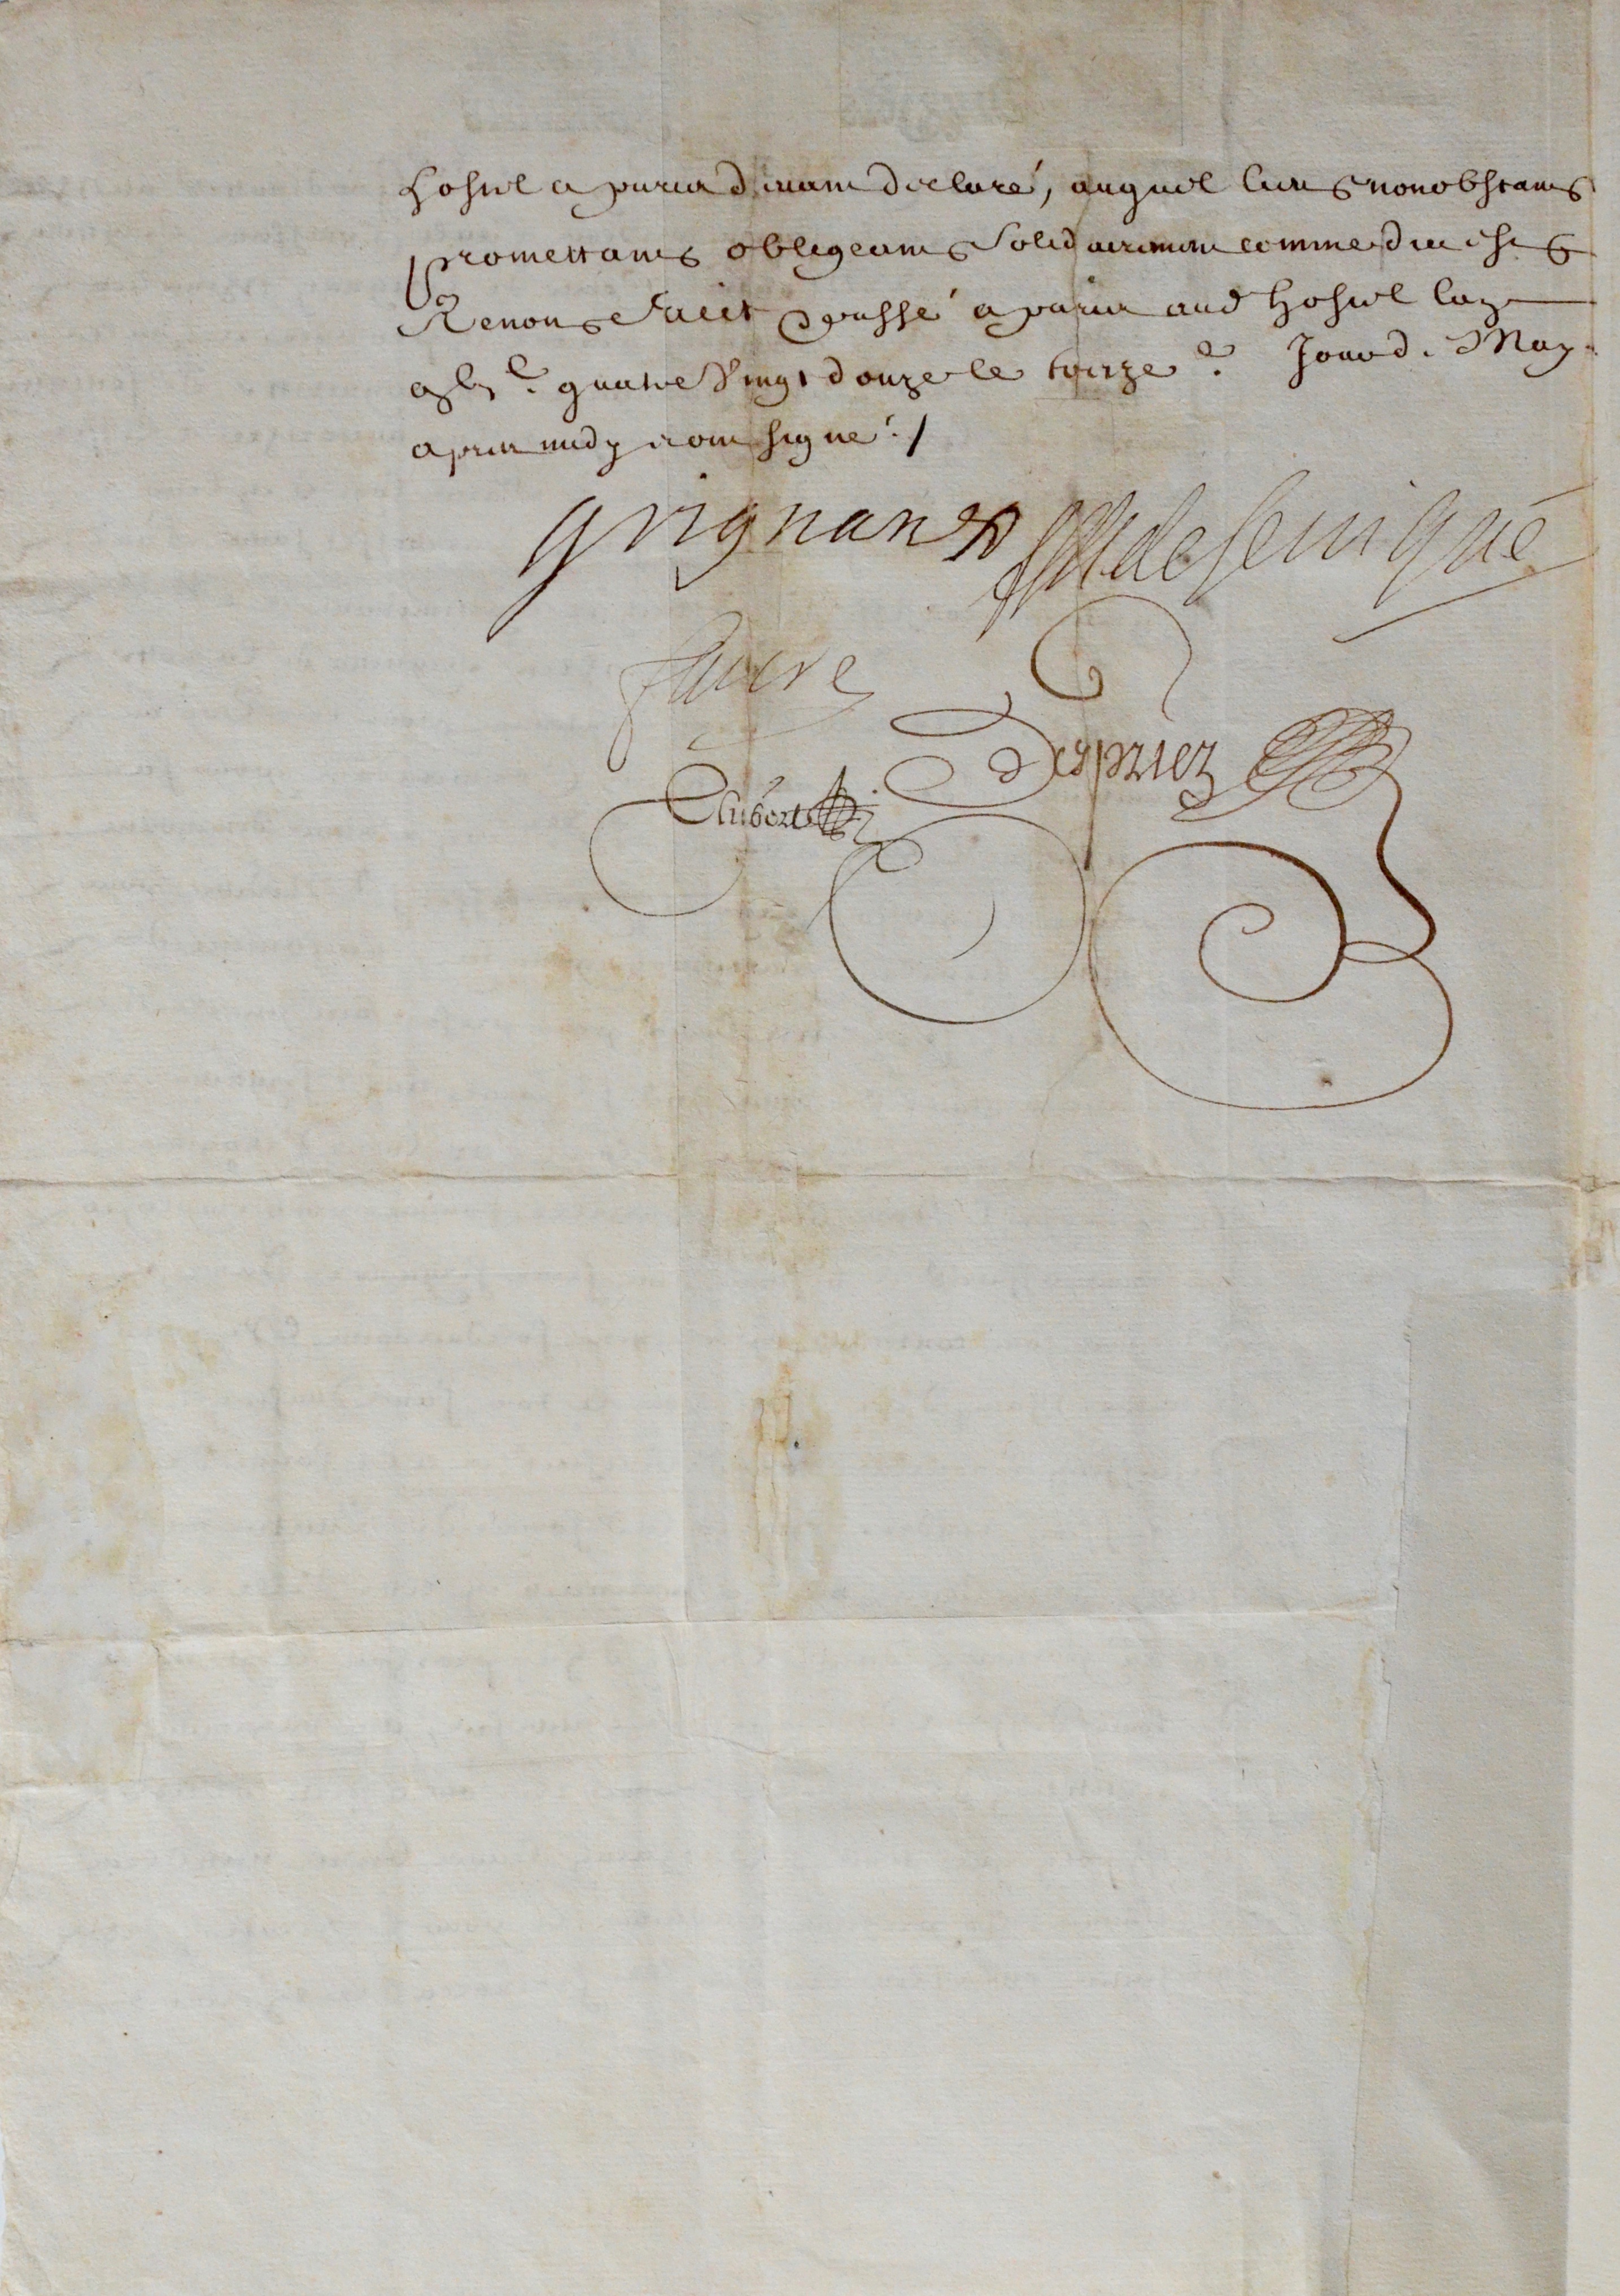 hostel a paris devant declaré, auquel lieu &c nonobstant &c
promettans &c obligeans &c solidairement comme dit est &c
Renon &c faict & passé a paris aud hostel l'an
gbjc quatre Vingt douze le treize e Jour de May
apres midy et ont signé ./
grignan
M de Sevigné
faure
desprez
Clubert